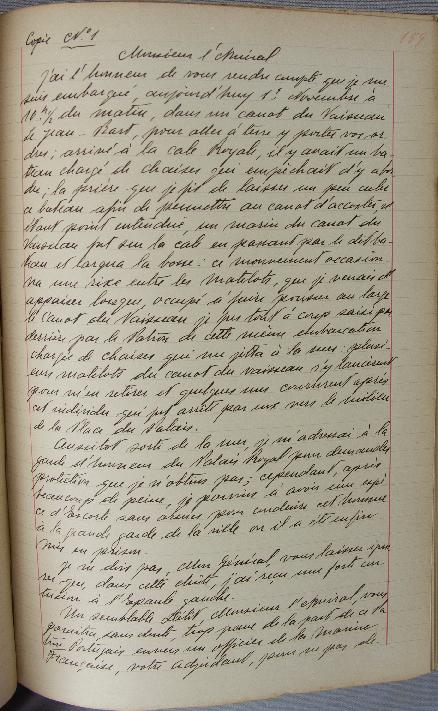 Copie N° 1
189
Monsieur l'Amiral
J'ai l'honneur de vous rendre compte que je me
suis embarqué, aujourd'huy 1er Novembre à
10h ½ du matin, dans un canot du Vaisseau
le Jean-Bart, pour aller à terre y porter vos or-
dres; arrivé à la cale Royale, il y avait un ba-
teau chargé de chaises qui empêchait d'y abor-
der; la prière que je fis de laisser un peu culer
ce bateau afin de permettre au canot d'accoster n'
étant point entendue, un marin du canot du
Vaisseau fut sur la cale en passant par le dit ba-
teau et largua la bosse: ce mouvement occasion-
na une rixe entre les matelots, que je venais d'
appaiser lorsque, occupé à faire pousser au large
le canot du Vaisseau je fus tout à coup saisi par
derrière par le Patron de cette même embarcation
chargée de chaises qui me jetta à la mer: plusi-
eurs matelots du canot du vaisseau s'y lancèrent
pour m'en retirer et quelques uns coururent après
cet individu qui fut arrêté par eux vers le milieu
de la Place du Palais.
Aussitôt sorti de la mer je m'adressai à la
garde d'honneur du Palais Royal pour demander
protection que je n'obtins pas; cependant, après
beaucoup de peine, je parvins à avoir une espè-
ce d'escorte sans armes pour conduire cet homme
à la grande garde de la ville où il a été enfin
mis en prison.
Je ne dois pas, Mon Général, vous laisser igno-
rer que, dans cette chute, j'ai reçu une fort con-
tusion à l'Epaule gauche.
Un semblable délit Monsieur l'Amiral, vous
paraîtra, sans doute, trop grave de la part de ce Ma-
rin Portugais envers un officier de la Marine
Française, votre adjudant, pour ne pas de-